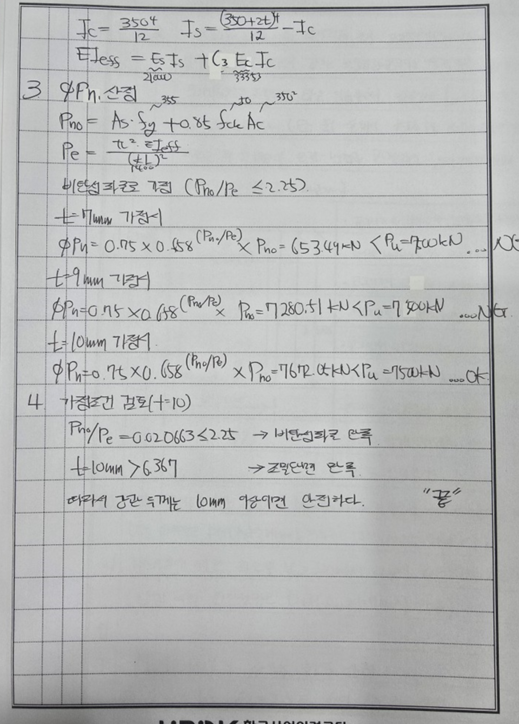 Ic = 350⁴/12 Is = (350+2t)⁴/12 - Ic
EIeff = Es Is + C3 Ec Ic
3 φPn 산정
~355 ~50 ~350²
Pno = As·fy + 0.85 fck Ac
Pe = π²·EIeff/(kL)²
비탄성좌굴로 가정 (Pno/Pe ≤ 2.25)
t=7mm 가정시
φPn = 0.75 × 0.658^(Pno/Pe) × Pno = 6534kN < Pu = 7500kN ... NG
t=9mm 가정시
φPn = 0.75 × 0.658^(Pno/Pe) × Pno = 7280.51 kN < Pu = 7500kN ...NG
t=10mm 가정시
φPn = 0.75 × 0.658^(Pno/Pe) × Pno = 7672.05kN < Pu = 7500kN ...OK
4 가정조건 검토(t=10)
Pno/Pe = 0.020663 ≤ 2.25 → 비탄성좌굴 만족
t=10mm > 6.367 → 조밀단면 만족
따라서 강관 두께는 10mm 이상이면 안전하다. "끝"